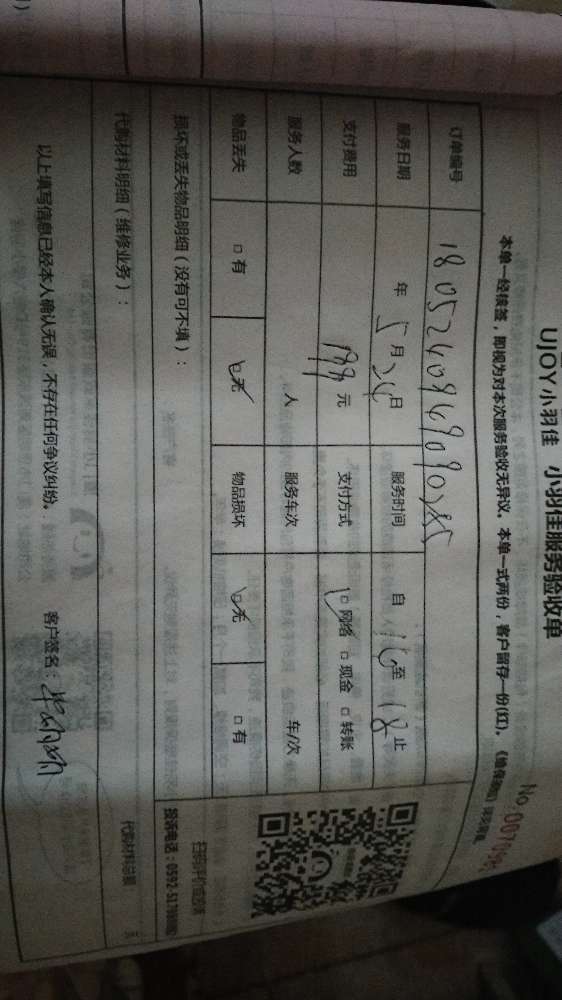 UJOY小羽佳 小羽佳服务验收单
No.
本单一经核签，即视为对本次服务验收无异议。本单一式两份，客户留存一份(红)。
订单编号
服务日期 年 5 月 24 日 服务时间 自 16 至 18 止
支付费用 199 元 支付方式 □ 网络 □ 现金 □ 转账
服务人数 人 服务车次 车/次
物品丢失 □ 有 □ 无 物品损坏 □ 无 □ 有
扫码评价或投诉
损坏或丢失物品明细（没有可不填）：
代购材料明细（维修业务）： 代购材料总额： 元
以上填写信息已经本人确认无误，不存在任何争议纠纷。 客户签名：